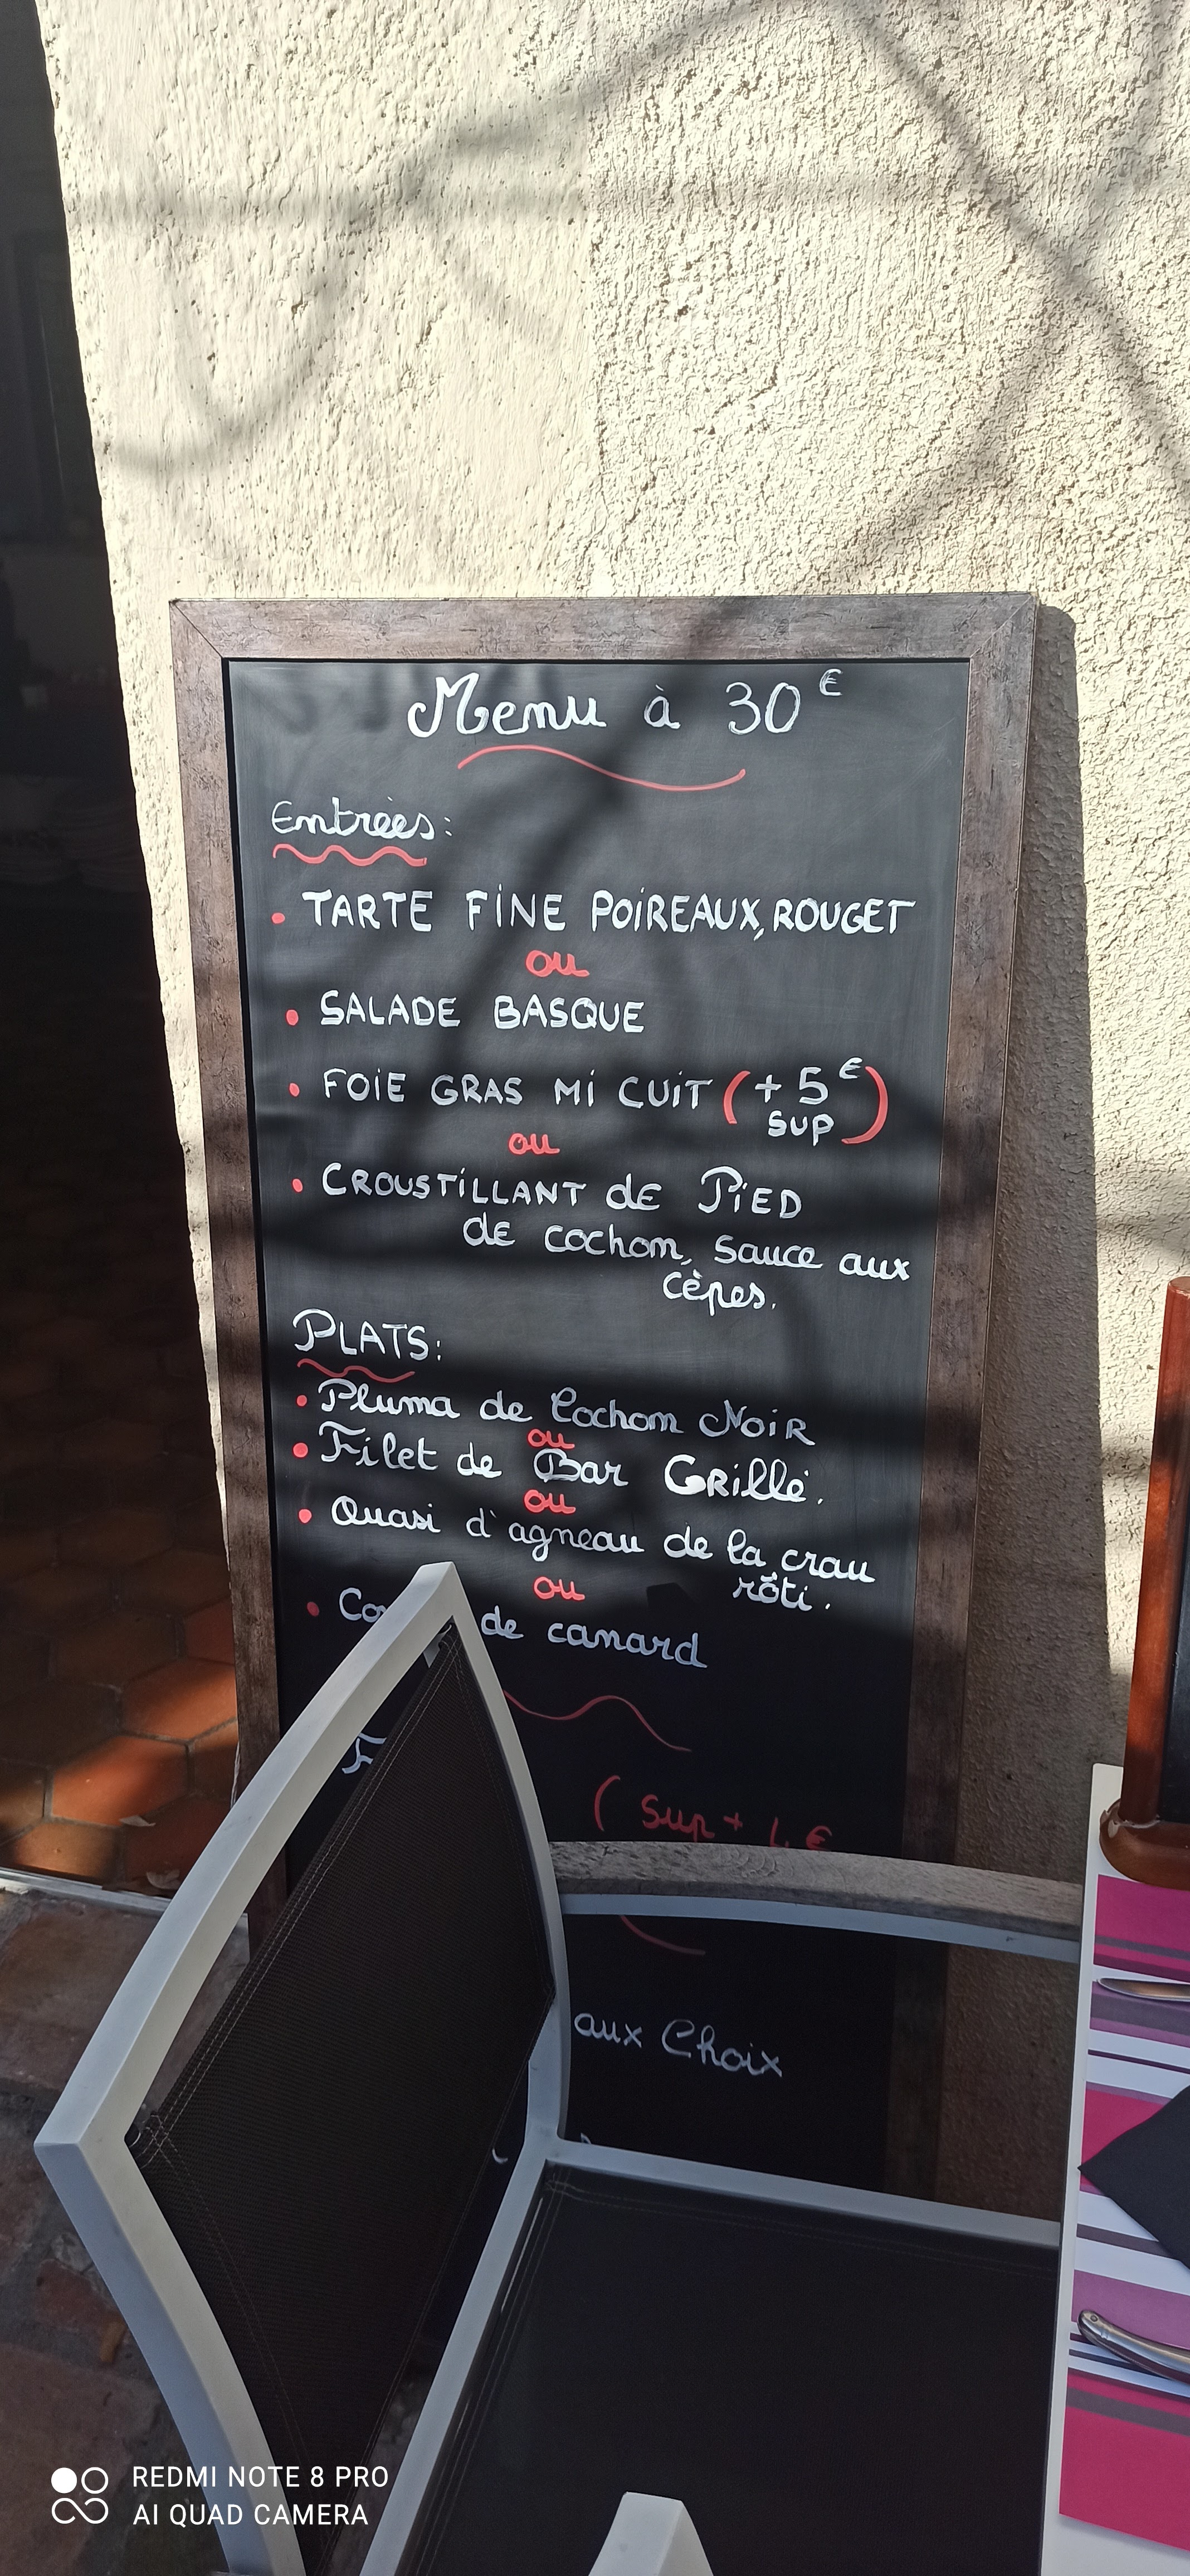 Menu à 30€
Entrées:
• TARTE FINE POIREAUX, ROUGET
ou
• SALADE BASQUE
• FOIE GRAS MI CUIT (+ 5€
SUP)
ou
• CROUSTILLANT de PiED
de cochon, sauce aux
cèpes.
PLATS:
• Pluma de Cochon Noir
ou
• Filet de Bar Grillé.
ou
• Quasi d'agneau de la crau
rôti.
ou
• de canard
(Sup +
aux Choix
REDMI NOTE 8 PRO
AI QUAD CAMERA